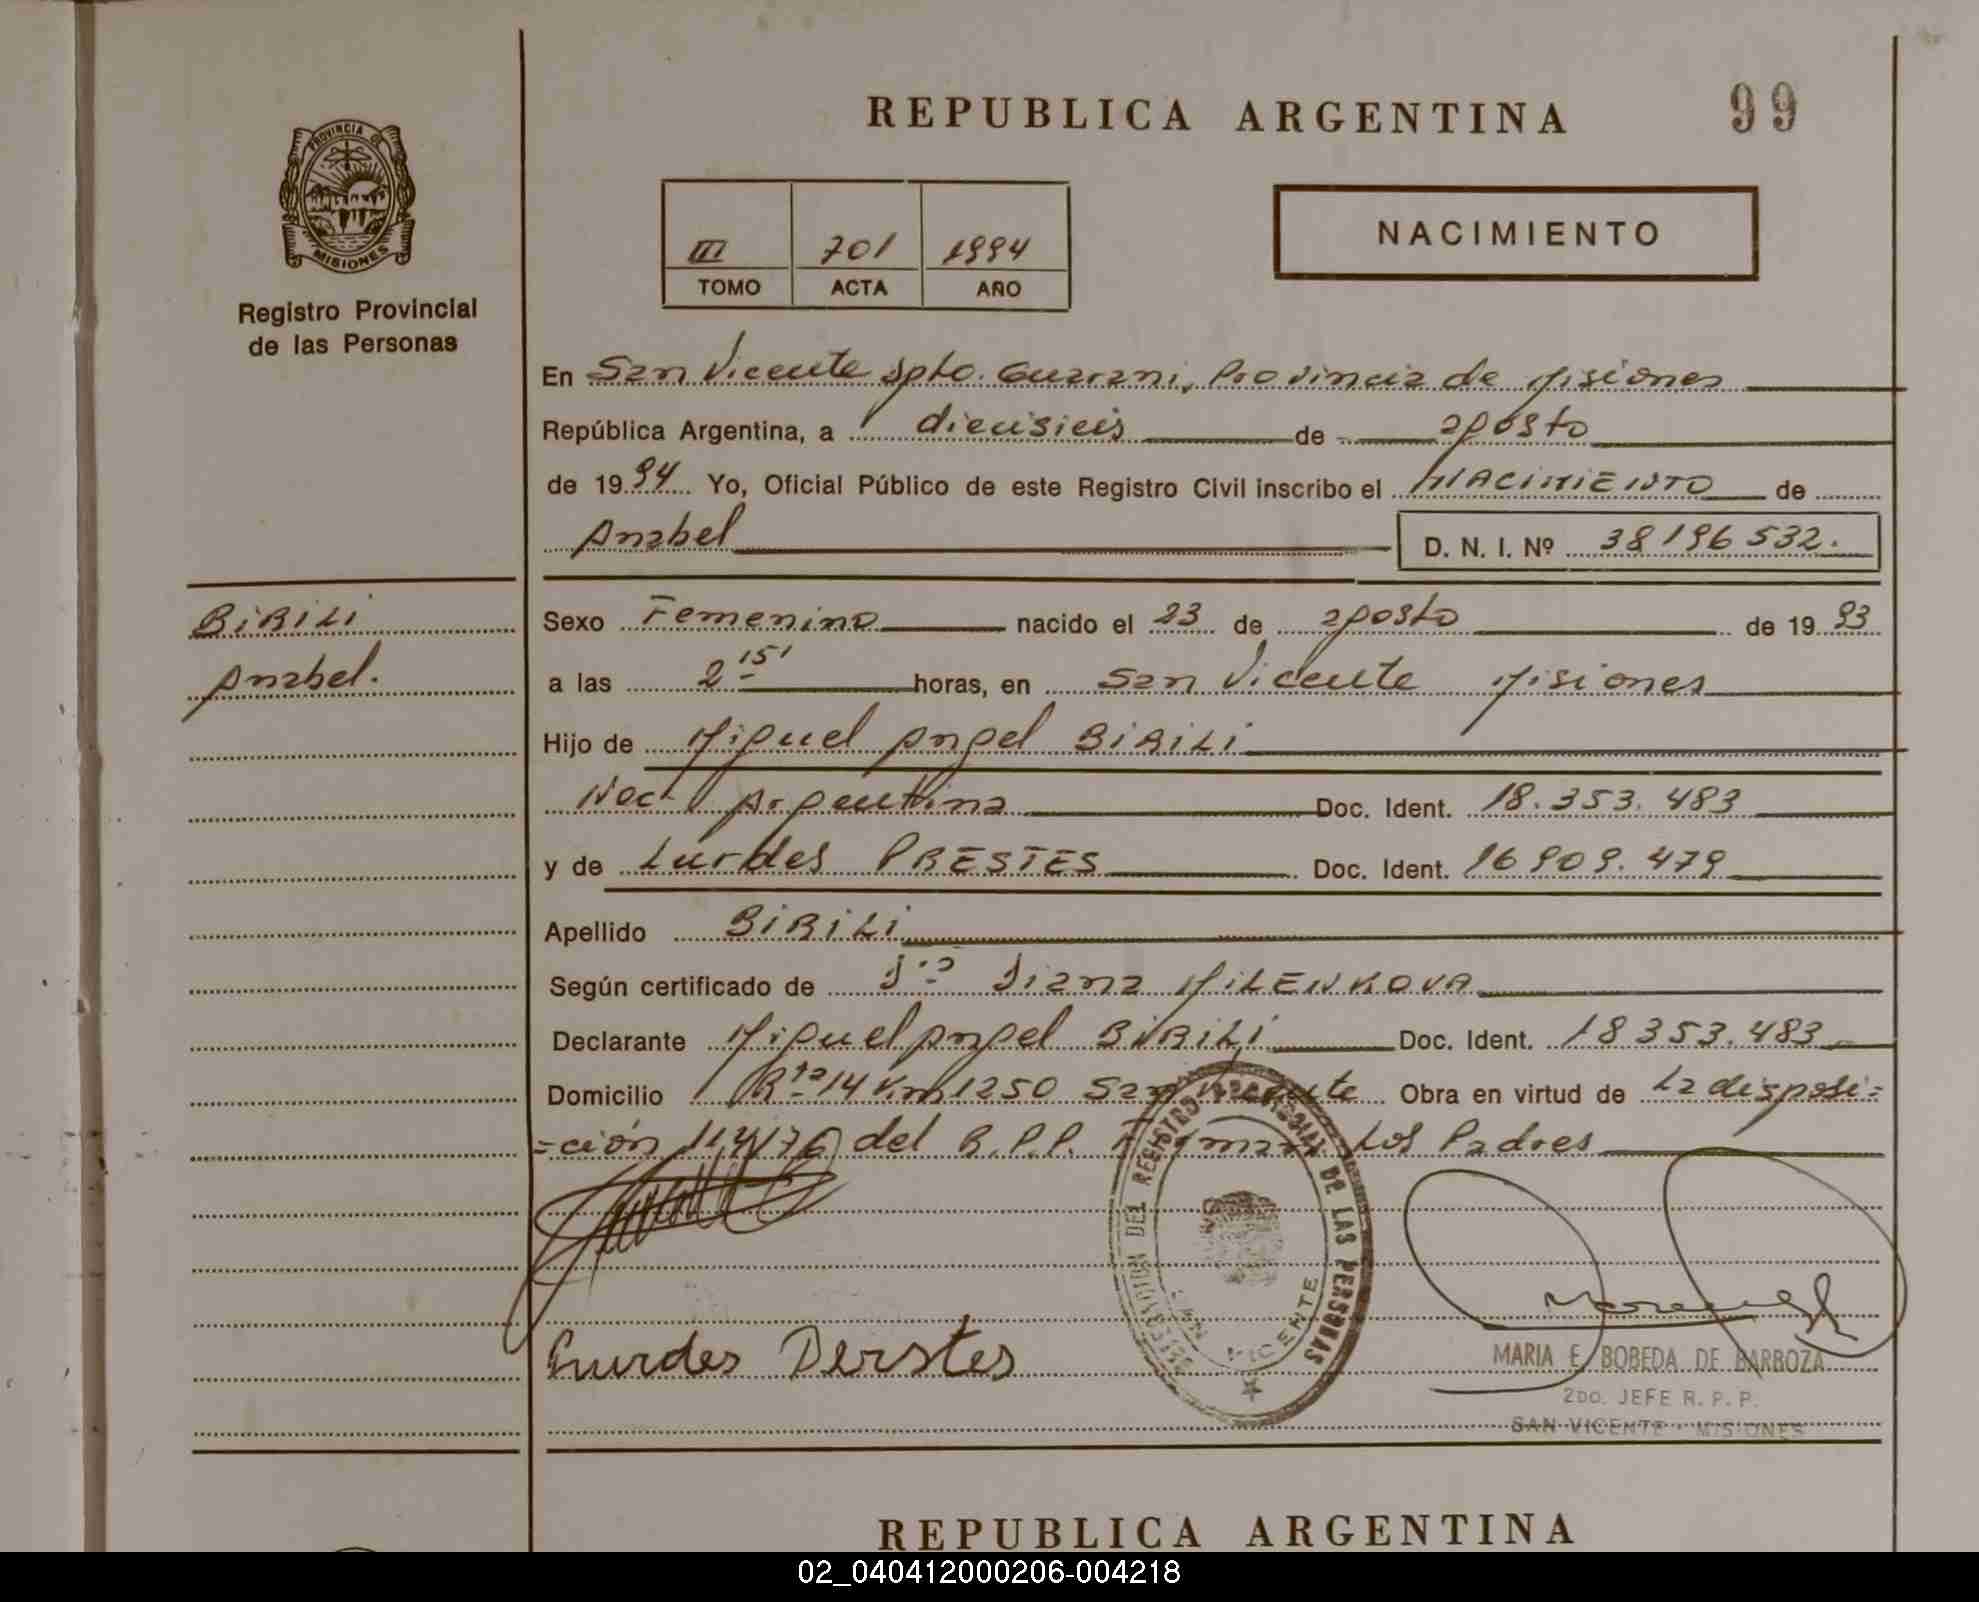 REPUBLICA ARGENTINA
99
PROVINCIA DE
MISIONES
Registro Provincial
de las Personas
III 701 1994
TOMO ACTA AÑO
NACIMIENTO
En San Vicente Dpto. Guarani, Provincia de Misiones
República Argentina, a dieciseis de agosto
de 1994 Yo, Oficial Público de este Registro Civil inscribo el NACIMIENTO de
Anabel D. N. I. Nº 38196532.
BIBILI
Anabel.
Sexo Femenino nacido el 23 de agosto de 1993
a las 2 15' horas, en San Vicente Misiones
Hijo de Miguel Angel BIBILI
Nac. Argentina Doc. Ident. 18.353.483
y de Lurdes PRESTES Doc. Ident. 16909.479
Apellido BIBILI
Según certificado de Dra Diana MILENKOVA
Declarante Miguel Angel BIBILI Doc. Ident. 18353.483
Domicilio Rta 14 Km 1250 San Vicente Obra en virtud de La disposi=
=ción 114/76 del R.P.P. Firman Los Padres
DELEGACION DEL REGISTRO PROVINCIAL DE LAS PERSONAS
SAN VICENTE
Lurdes Derstes
MARIA E. BOBEDA DE BARBOZA
2DO. JEFE R. P. P.
SAN VICENTE - MISIONES
REPUBLICA ARGENTINA
02_040412000206-004218